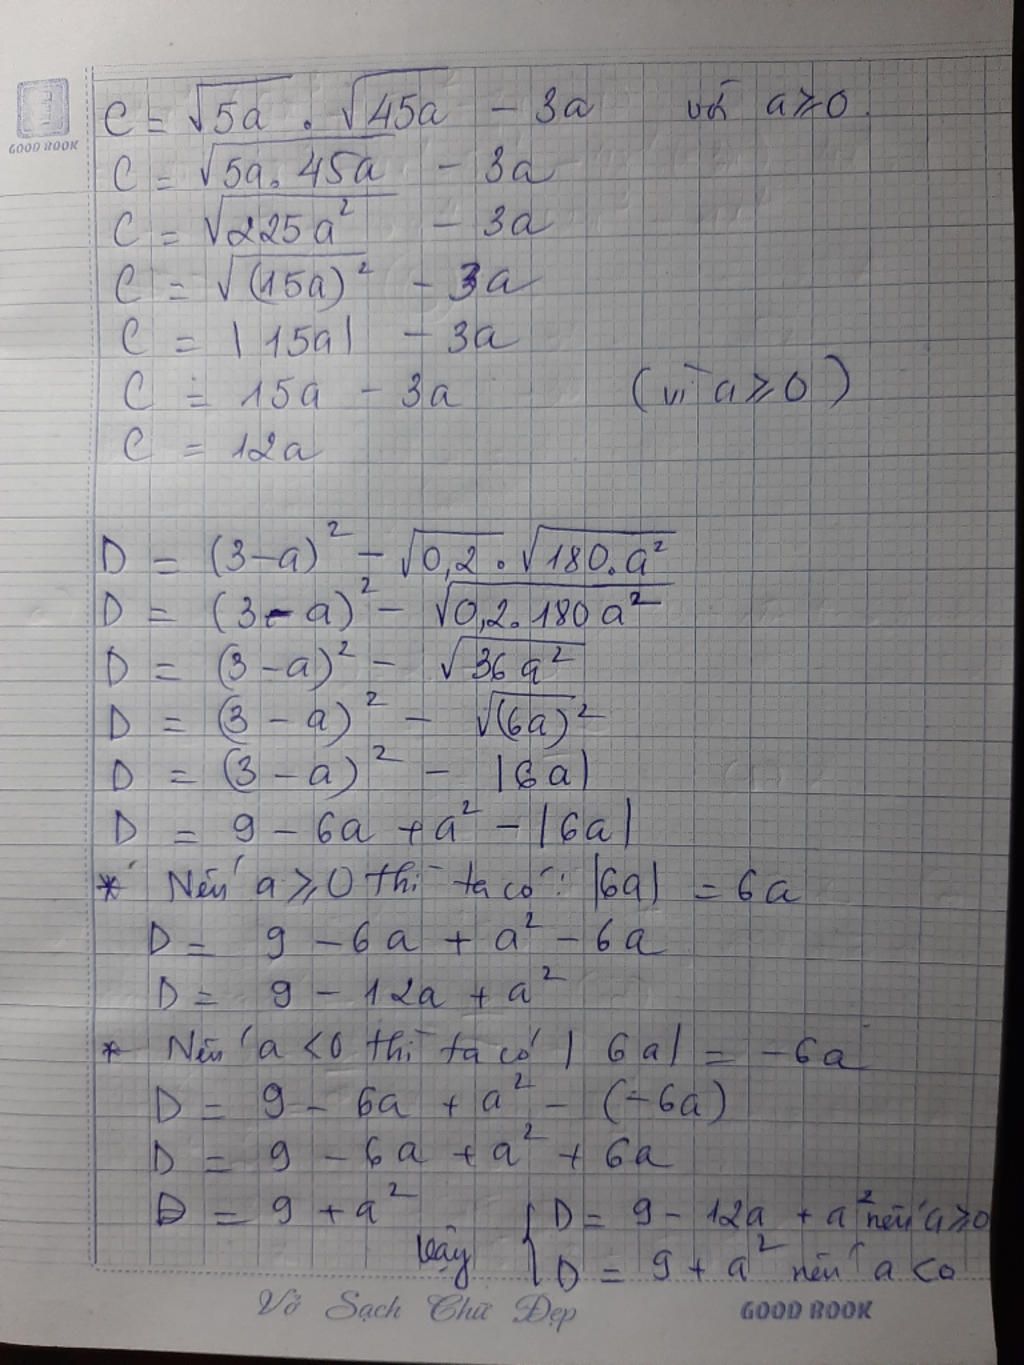 GOOD BOOK
C = √5a . √45a - 3a với a ≥ 0.
C = √5a. 45a - 3a
C = √225a² - 3a
C = √(15a)² - 3a
C = |15a| - 3a
C = 15a - 3a (vì a ≥ 0)
C = 12a
D = (3-a)² - √0,2 . √180.a²
D = (3-a)² - √0,2.180a²
D = (3-a)² - √36a²
D = (3-a)² - √(6a)²
D = (3-a)² - |6a|
D = 9 - 6a + a² - |6a|
* Nếu a ≥ 0 thì ta có: |6a| = 6a
D = 9 - 6a + a² - 6a
D = 9 - 12a + a²
* Nếu a < 0 thì ta có |6a| = -6a
D = 9 - 6a + a² - (-6a)
D = 9 - 6a + a² + 6a
D = 9 + a²
Vậy { D = 9 - 12a + a² nếu a ≥ 0
D = 9 + a² nếu a < 0
Vở Sạch Chữ Đẹp GOOD BOOK